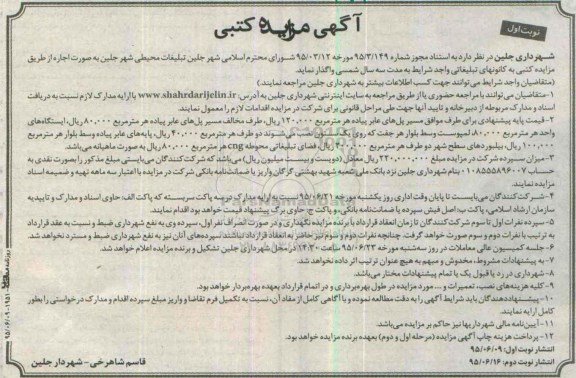 نوبت اول
آگهی مزایده کتبی
شهرداری جلین در نظر دارد به استناد مجوز شماره ۹۵/۳/۱۴۹ مورخه ۹۵/۰۳/۱۲ شورای محترم اسلامی شهر جلین تبلیغات محیطی شهر جلین به صورت اجاره از طریق
مزایده کتبی به کانونهای تبلیغاتی واجد شرایط به مدت سه سال شمسی واگذار نماید.
(متقاضیان واجد شرایط می‌توانند جهت کسب اطلاعات بیشتر به شهرداری جلین مراجعه نمایند.)
۱-متقاضیان می توانند با مراجعه حضوری یا از طریق مراجعه به سایت اینترنتی شهرداری جلین به آدرس: www.shahrdarijelin.ir با ارایه مدارک لازم نسبت به دریافت
اسناد و مدارک مربوطه از دبیرخانه و تایید آنها جهت طی مراحل قانونی برای شرکت در مزایده اقدامات لازم را معمول نمایند.
۲- قیمت پایه پیشنهادی برای طرف موافق مسیر پل‌های عابر پیاده هر مترمربع ۱۲۰،۰۰۰ ریال، طرف مخالف مسیر پل‌های عابر پیاده هر مترمربع ۸۰،۰۰۰ ریال، ایستگاه‌های
واحد هر مترمربع ۸۰،۰۰۰، لمپوست وسط بلوار هر جفت که روی یک نصب می‌شوند دو طرف هر مترمربع ۴۰،۰۰۰ ریال، پایه‌های عابر پیاده وسط بلوار هر مترمربع
۱۰۰،۰۰۰ ریال، بیلبوردهای سطح شهر دو طرف هر مترمربع ۱۰۰،۰۰۰ ریال، فضای تبلیغاتی محوطه cng هر مترمربع ۸۰،۰۰۰ ریال به صورت ماهیانه می‌باشد.
۳- میزان سپرده شرکت در مزایده مبلغ ۲۲۰،۰۰۰،۰۰۰ ریال معادل (دویست و بیست میلیون ریال) می‌باشد که شرکت‌کنندگان می‌بایستی مبلغ مذکور را بصورت نقدی به
حساب ۰۱۰۸۵۵۵۸۹۶۰۰۷ بنام شهرداری جلین نزد بانک ملی شعبه شهید بهشتی گرگان واریز یا ضمانتنامه بانکی شرکت در مزایده با اعتبار سه ماهه تهیه و ضمیمه اسناد
مزایده نمایند.
۴-شرکت کنندگان می‌بایست تا پایان وقت اداری روز یکشنبه مورخه ۹۵/۰۶/۲۱ نسبت به ارایه مدارک در سه پاکت سربسته که پاکت الف: حاوی اسناد و مدارک و تاییدیه
سازمان ارشاد اسلامی، پاکت ب: اصل فیش سپرده یا ضمانت‌نامه بانکی، و پاکت ج حاوی برگ پیشنهاد قیمت خواهد بود اقدام نمایند.
۵-سپرده نفرات اول تا سوم شرکت‌کنندگان تا زمان انعقاد قرارداد با برنده مزایده نگهداری و در صورت انصراف نفر اول، سپرده وی به نفع شهرداری ضبط و نسبت به عقد قرارداد
به ترتیب با نفرات دوم و سوم صورت خواهد گرفت. چنانچه نفرات دوم و سوم نیز حاضر به انعقاد قرارداد نباشند سپرده‌های آنان نیز به نفع شهرداری ضبط و مسترد نخواهد شد.
۶- جلسه کمیسیون عالی معاملات در روز سه‌شنبه مورخه ۹۵/۰۶/۲۳ ساعت ۱۴:۳۰ در محل شهرداری جلین تشکیل و برنده مزایده اعلام خواهد شد.
۷- به پیشنهادات مشروط، مخدوش و مبهم به هیچ عنوان ترتیب اثر داده نخواهد شد.
۸-شهرداری در رد یا قبول یک یا تمام پیشنهادات مختار می‌باشد.
۹- کلیه هزینه‌های نصب، تعمیرات و ... مورد مزایده در طول بهره‌برداری و در اتمام قرارداد بعهده بهره‌بردار خواهد بود.
۱۰-پیشنهاددهندگان باید شرایط آگهی را به دقت مطالعه نموده و با آگاهی کامل از مفاد آن، نسبت به تکمیل فرم تقاضا و واریز مبلغ سپرده اقدام و مدارک درخواستی را بطور
کامل ارایه نمایند.
۱۱-آیین‌نامه مالی شهرداریها نیز حاکم بر مزایده می‌باشد.
۱۲- پرداخت هزینه چاپ آگهی مزایده (مرحله اول و دوم) بعهده برنده مزایده خواهد بود.
انتشار نوبت اول: ۹۵/۰۶/۰۹
انتشار نوبت دوم: ۹۵/۰۶/۱۶
قاسم شاهرخی - شهردار جلین